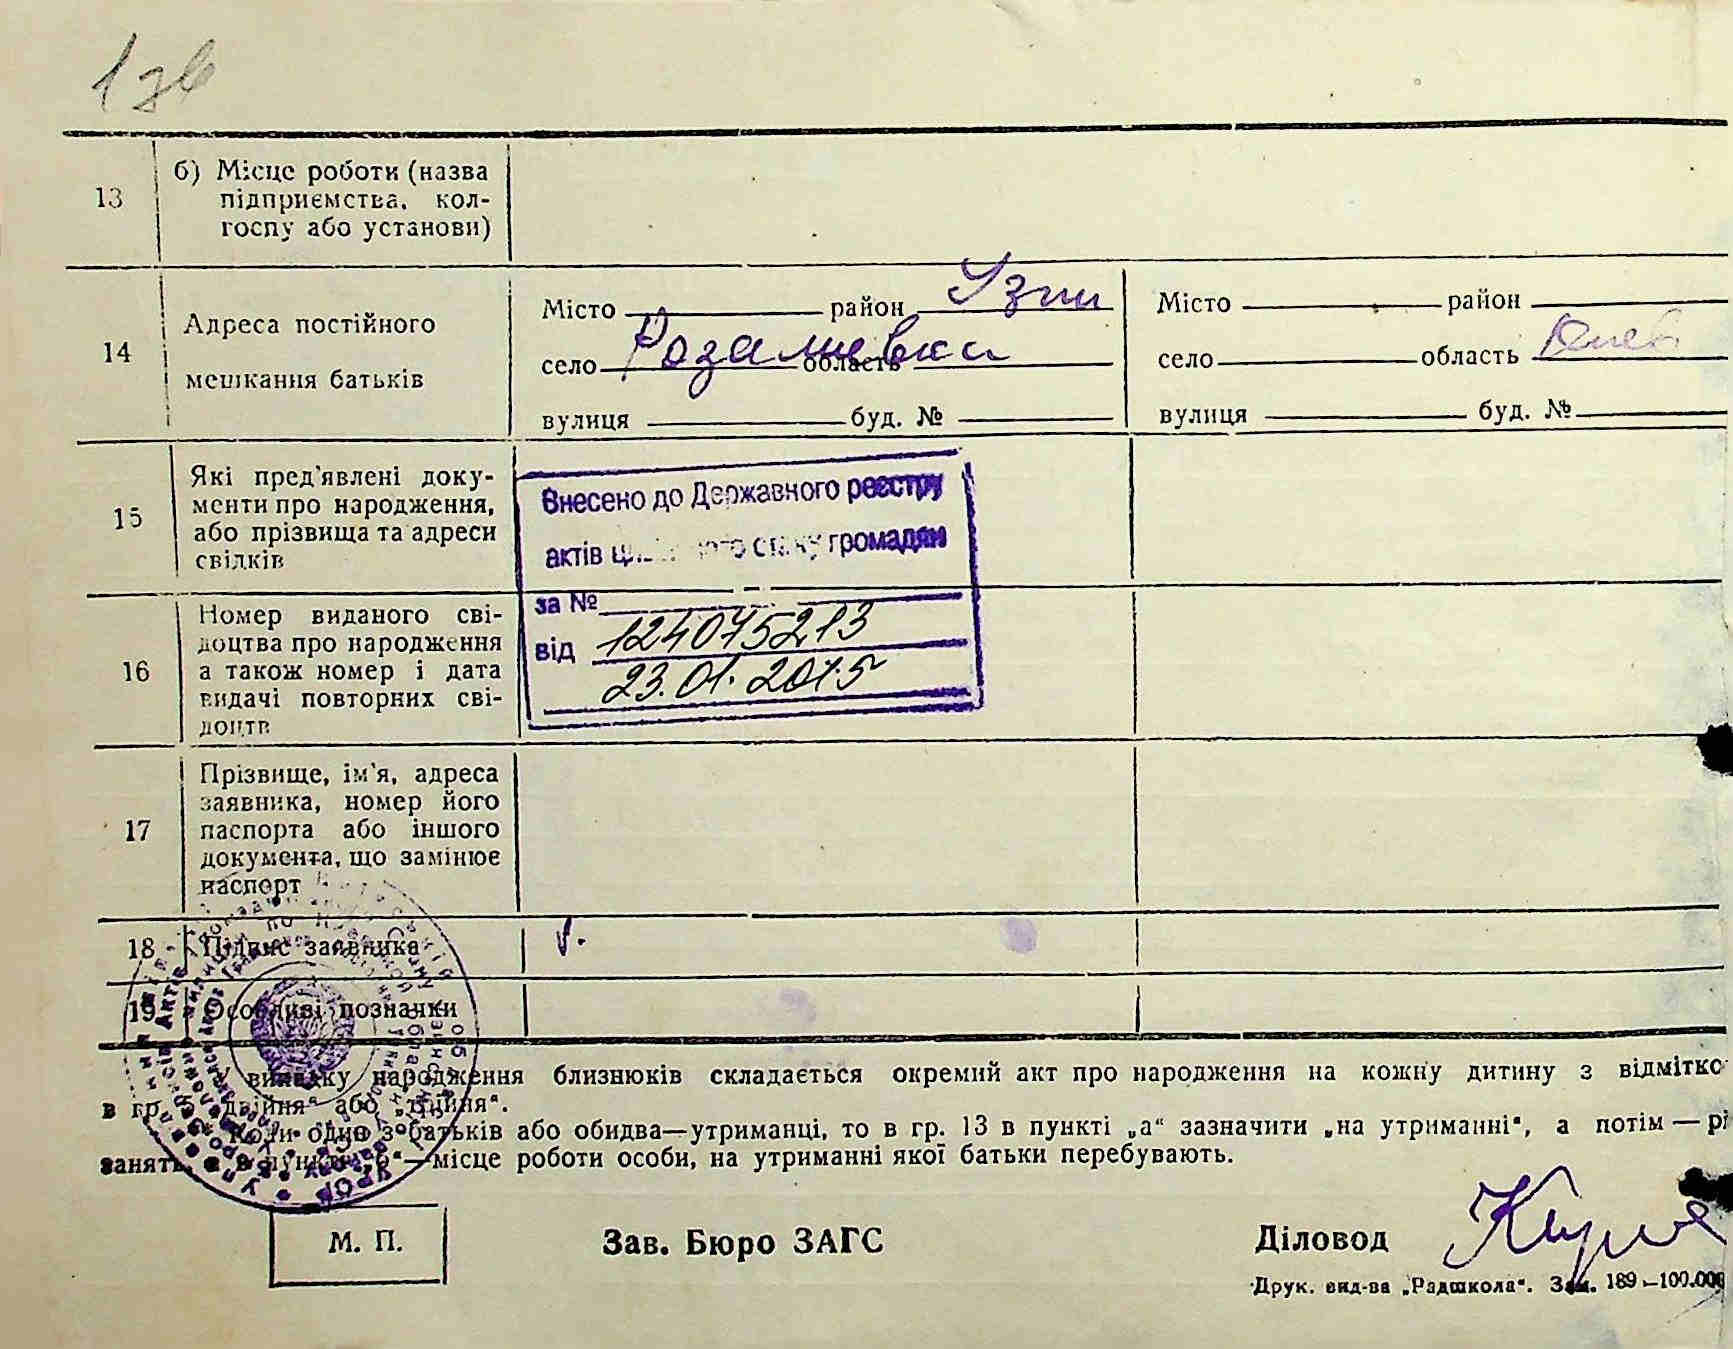 13 б) Місце роботи (назва
підприємства, кол-
госпу або установи)
14 Адреса постійного
мешкання батьків
Місто район Узин
село Розаліевка область
вулиця буд. №
Місто район
село область Киев
вулиця буд. №
15 Які пред'явлені доку-
менти про народження,
або прізвища та адреси
свідків
Внесено до Державного реєстру
актів стану громадян
за №
124075213
від
23.01.2015
16 Номер виданого сві-
доцтва про народження
а також номер і дата
видачі повторних сві-
доцтв
17 Прізвище, ім'я, адреса
заявника, номер його
паспорта або іншого
документа, що замінює
паспорт
18 Підпис заявника
v.
19 Особливі позначки
У випадку народження близнюків складається окремий акт про народження на кожну дитину з відмітко
в гр. 5 „двійня“ або „трійня“.
Коли одно з батьків або обидва—утриманці, то в гр. 13 в пункті „а“ зазначити „на утриманні“, а потім — рі
занять, а в пункті „б“—місце роботи особи, на утриманні якої батьки перебувають.
М. П.
Зав. Бюро ЗАГС
Діловод
Друк. вид-ва „Радшкола“. Зам. 189—100.000